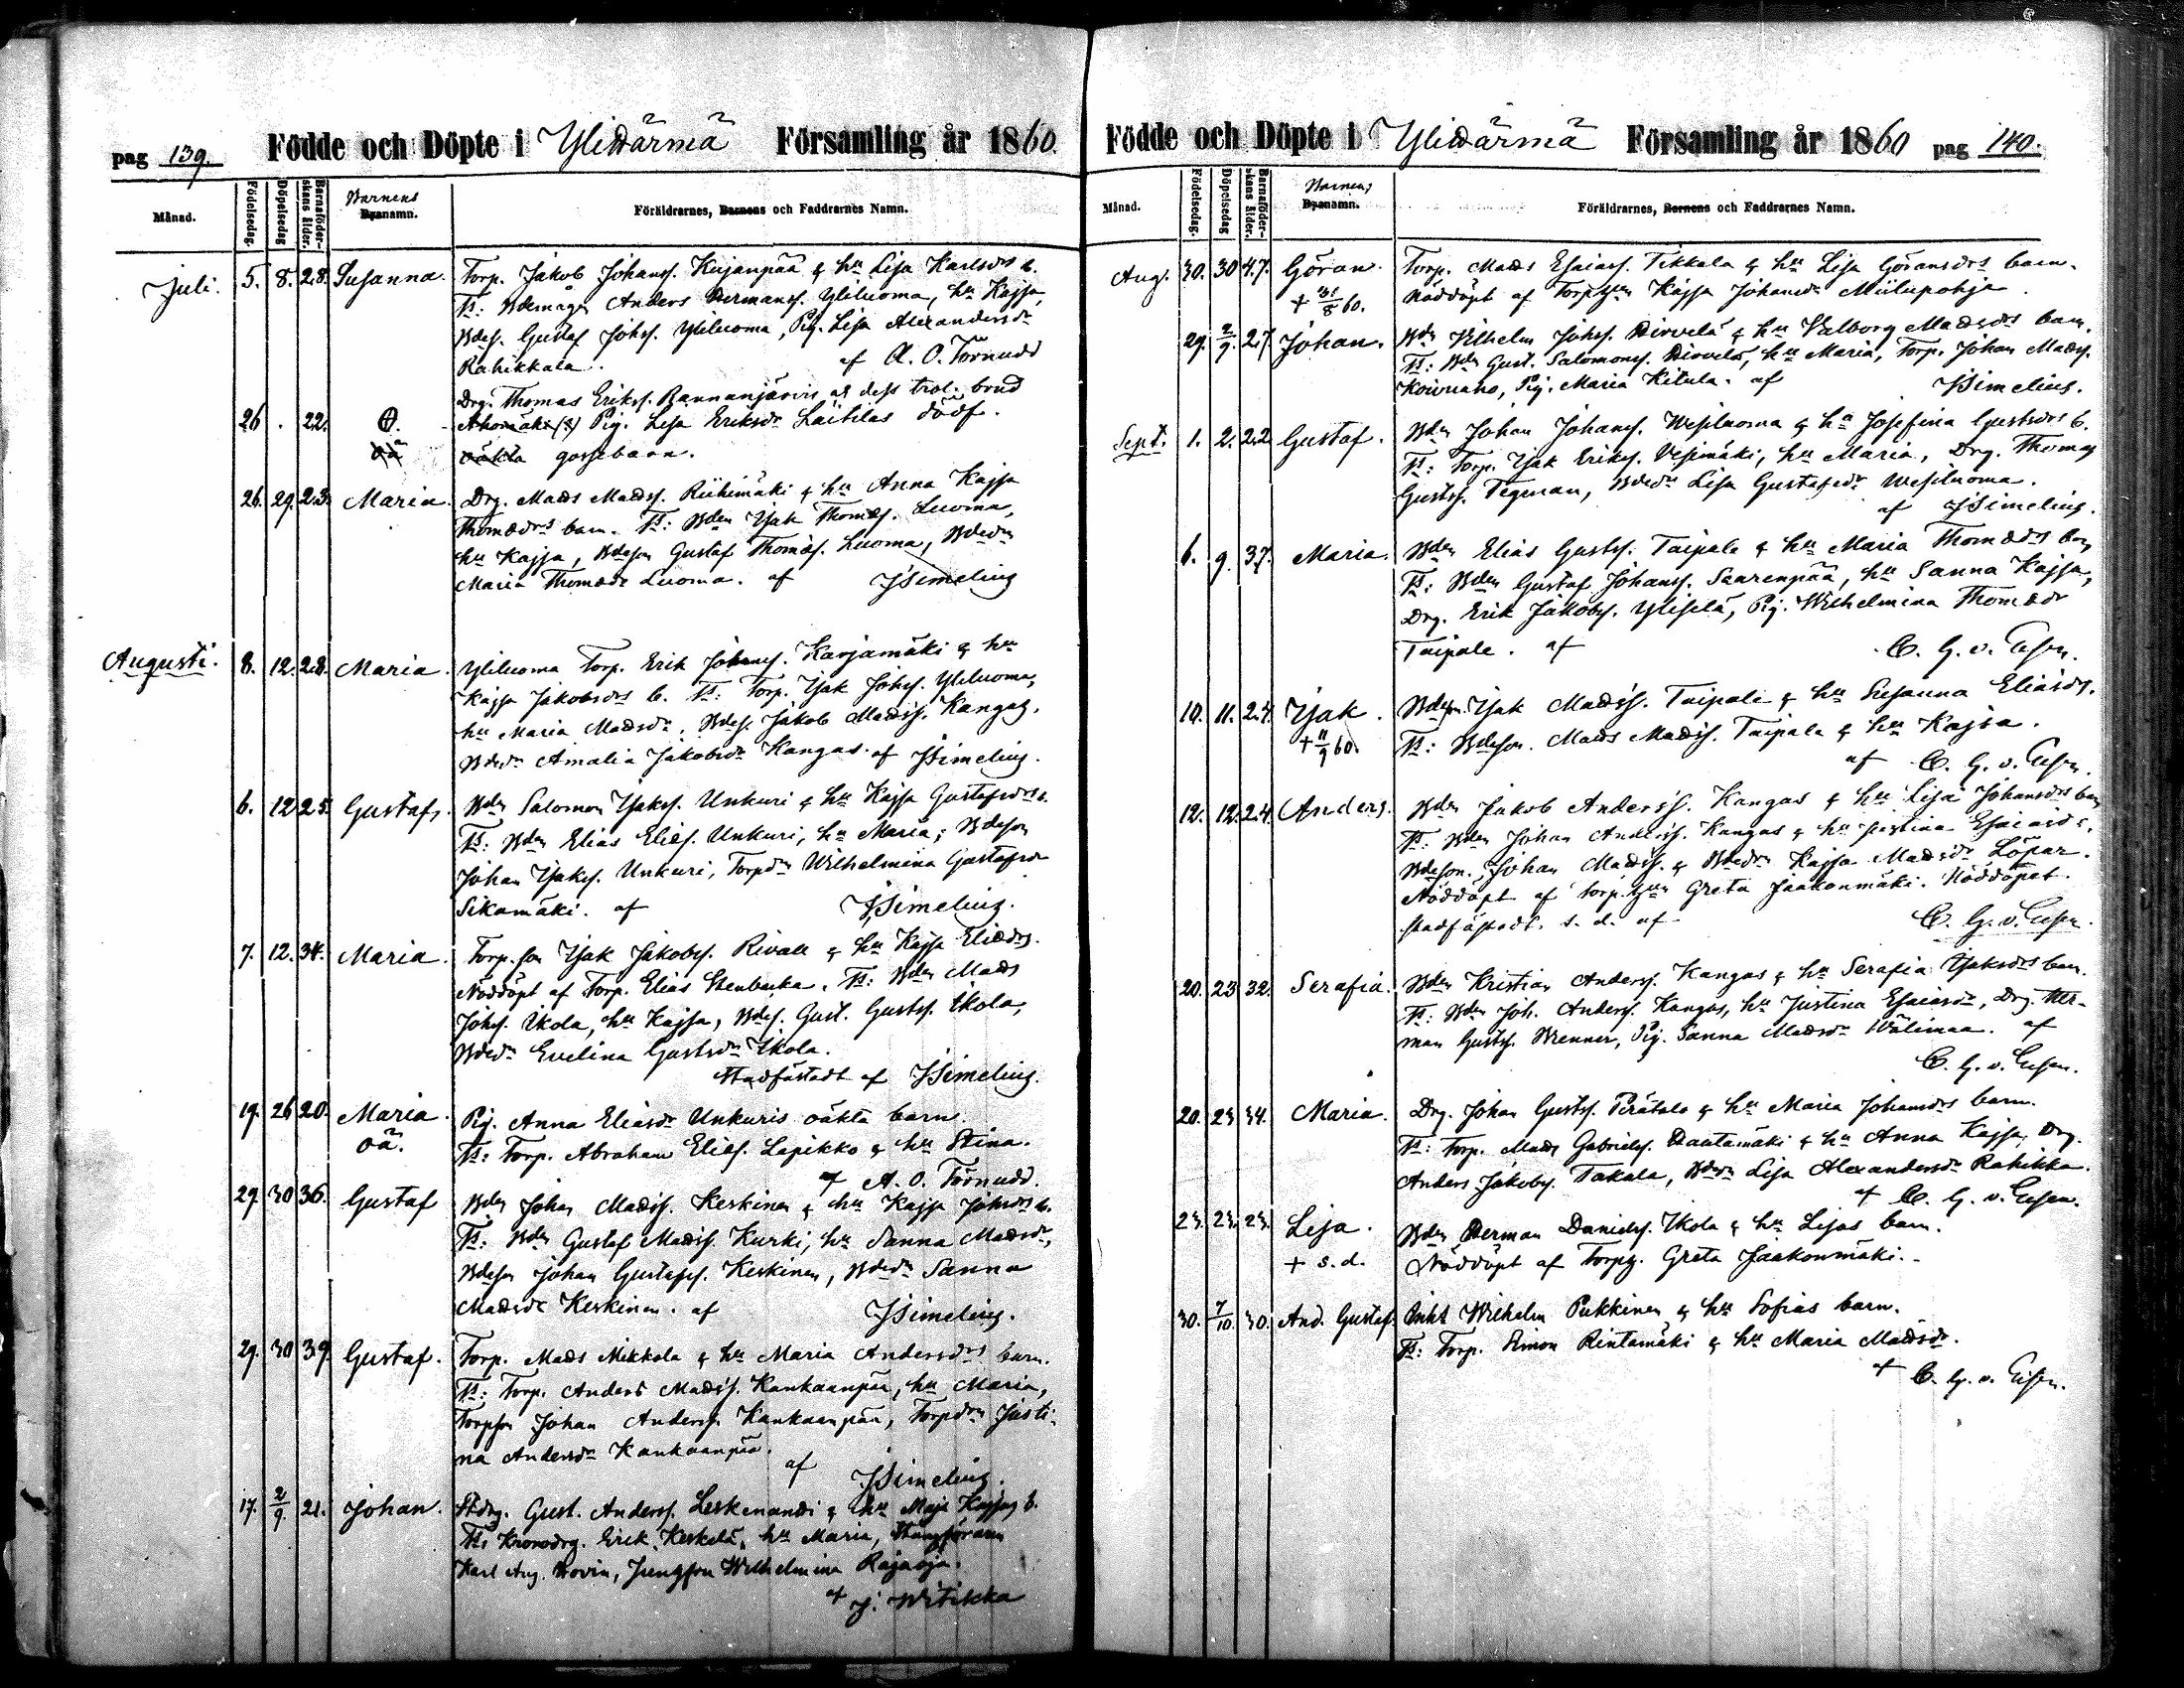 pag 139. Födde och Döpte i Ylihärmä Församling år 1860.
Månad. Födelsedag. Döpelsedag Barnaföderskans ålder. Barnens Bynamn. Föräldrarnes, Barnens och Faddrarnes Namn.
Juli. 5. 8. 28. Susanna. Torp. Jakob Johanss. Kujanpää & hu Lisa Karlsdrs b.
Ts: Bdemåg Anders Hermanss. Yliluoma, hu Kajsa,
Bdes. Gustaf Johss. Yliluoma, Pig. Lisa Alexandersdr
Rahikkala. af A. O. Törnudd
Drg. Thomas Erikss. Bannanjärvis och dess trol. brud
26 . 22. Pig. Lisa Eriksdr Laitilas dödf.
oä oäkta gossebarn.
26. 29. 23. Maria. Drg. Mads Madss. Riihimäki & hu Anna Kajsa
Thomædrs barn. Ts: Bden Isak Thomæs. Luoma,
hu Kajsa, Bdeson Gustaf Thomæs. Luoma, Bdedr
Maria Thomædr Luoma. af JSimelius
Augusti. 8. 12. 28. Maria. Yliluoma Torp. Erik Johanss. Karjamäki & hu
Kajsa Jakobsdrs b. Ts: Torp. Isak Johss. Yliluoma,
hu Maria Madsdr, Bdes. Jakob Madss. Kangas,
Bdedr Amalia Jakobsdr Kangas. af JSimelius.
6. 12 25. Gustaf. Bden Salomon Isakss. Unkuri & hu Kajsa Gustafsdrs b.
Ts: Bden Elias Elies. Unkuri, hu Maria; Bdeson
Johan Isakss. Unkuri, Torpdr Wilhelmina Gustafsdr
Sikamäki. af JSimelius.
7. 12. 34. Maria. Torp.son Isak Jakobss. Rivall & hu Kajsa Eliædrs.
Nöddöpt af Torp. Elias Stenbacka. Ts: Bden Mads
Johss. Ikola, hu Kajsa, Bdes. Gust. Gustss. Ikola,
Bdedr Evelina Gustsdr Ikola.
Stadfästadt af JSimelius.
19. 26 20. Maria. Pig. Anna Eliasdr Unkuris oäkta barn.
oä. Ts: Torp. Abraham Elies. Lapikko & hu Stina.
af A. O. Törnudd.
29. 30 36. Gustaf Bden Johan Madss. Keskinen & hu Kajsa Johsdrs b.
Ts: Bden Gustaf Madss. Kurki, hu Sanna Madsdr,
Bdeson Johan Gustafss. Keskinen, Bdedr Sanna
Madsdr Keskinen. af JSimelius.
29. 30 39. Gustaf. Torp. Mads Mikkola & hu Maria Andersdrs barn.
Ts: Torp. Anders Madss. Kankaanpää, hu Maria,
Torpson Johan Anderss. Kankaanpää, Torpdrn Justi-
na Andersdr Kankaanpää.
af JSimelius.
17. 2/9 21. Johan. Stdrg. Gust. Anderss. Leskenandi & hu Maja Kajsas b.
Ts Kronodrg. Erik Keskelä, hu Maria,
Karl Aug. Hovin, Jungfru Wilhelmina Rajaoja.
af J. Witikka
Födde och Döpte i Ylihärmä Församling år 1860 pag 140.
Månad. Födelsedag. Döpelsedag Barnaföderskans ålder. Barnens Bynamn. Föräldrarnes, Barnens och Faddrarnes Namn.
Aug. 30. 30 47. Göran. Torp. Mads Esaiass. Tikkala & hu Lisa Göransdrs barn.
+ 31/8 60. Nöddöpt af Torp.hu Kajsa Johansdr Miilupohja.
29. 2/9. 27. Johan. Bden Wilhelm Johss. Hirvelä & hu Walborg Madsdrs barn.
Ts: Bden Gust. Salomonss. Hirvelä, hu Maria, Torp. Johan Madss.
Koivuaho, Pig. Maria Kitula. af JSimelius.
Sept. 1. 2. 22 Gustaf. Bden Johan Johanss. Wesiluoma & hu Josefina Gustsdrs b.
Ts: Torp. Isak Erikss. Vesimäki, hu Maria, Drg. Thomas
Gustss. Tegman, Bdedr Lisa Gustafsdr Wesiluoma.
af JSimelius.
6. 9. 37. Maria. Bden Elias Gustss. Taipale & hu Maria Thomædrs barn
Ts: Bden Gustaf Johanss. Saarenpää, hu Sanna Kajsa,
Drg. Erik Jakobss. Yliselä, Pig. Wilhelmina Thomædr
Taipale. af C. G. v. Essen.
10. 11. 24. Isak. Bdeson. Isak Madss. Taipale & hu Susanna Eliasdrs.
+ 11/9 60. Ts: Bdeson. Mads Madss. Taipale & hu Kajsa.
af C. G. v. Essen.
12. 12. 24. Anders. Bden Jakob Anderss. Kangas & hu Lisa Johansdrs barn
Ts: Bden Johan Anderss. Kangas & hu Justina Esaiasdr,
Bdeson. Johan Madss. & Bdedr Kajsa Madsdr Löpar.
Nöddöpt af Torp.hu Greta Jaakonmäki. Nöddopet
stadfästadt. s. d. af C. G. v. Essen.
20. 23 32. Serafia. Bden Kristian Anderss. Kangas & hu Serafia Isaksdrs barn.
Ts: Bden Joh. Anderss. Kangas, hu Justina Esaiasdr, Drg. Her-
man Gustss. Brenner, Pig. Sanna Madsdr Wälimaa. af
C. G. v. Essen.
20. 23 34. Maria. Drg. Johan Gustss. Perätalo & hu Maria Johansdrs barn.
Ts: Torp. Mads Gabrielss. Hautamäki & hu Anna Kajsa, Drg.
Anders Jakobss. Takala, Bdedr Lisa Alexandersdr Rahikka.
af C. G. v. Essen.
23. 23. 23. Lisa. Bden Herman Danielss. Ikola & hu Lisas barn.
+ s. d. Nöddöpt af Torphu. Greta Jaakonmäki.
30. 7/10. 30. And. Gustaf. Inhs Wilhelm Pukkinen & hu Sofias barn.
Ts: Torp. Simon Rintamäki & hu Maria Madsdr.
af C. G. v. Essen.